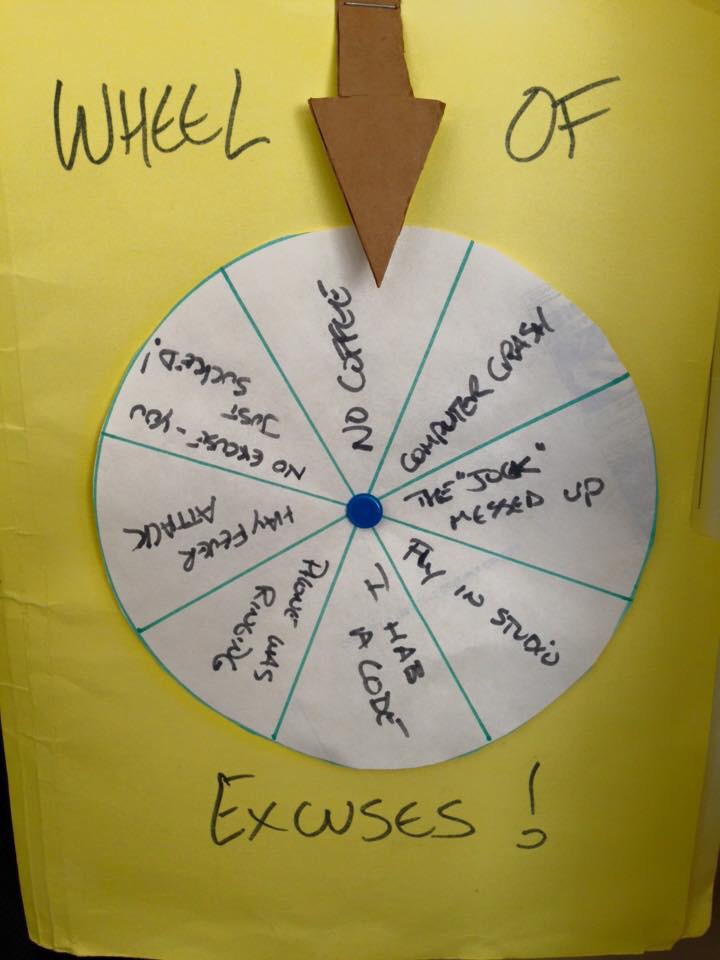 WHEEL OF
NO COFFEE
COMPUTER CRASH
THE "JOCK"
MESSED UP
FLY IN STUDIO
I HAB
A CODE
PHONE WAS
RINGING
HAY FEVER
ATTACK
NO EXCUSE - YOU
JUST
SUCKED!
EXCUSES!